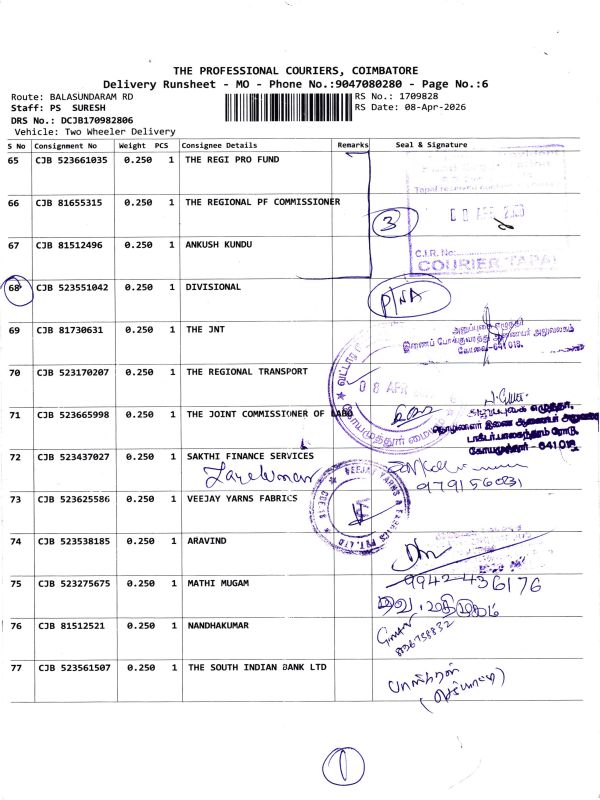 THE PROFESSIONAL COURIERS, COIMBATORE
Delivery Runsheet - MO - Phone No.:9047080280 - Page No.:6
Route: BALASUNDARAM RD
RS No.: 1709828
Staff: PS SURESH
RS Date: 08-Apr-2026
DRS No.: DCJB170982806
Vehicle: Two Wheeler Delivery
S No Consignment No Weight PCS Consignee Details Remarks Seal & Signature
65 CJB 523661035 0.250 1 THE REGI PRO FUND
66 CJB 81655315 0.250 1 THE REGIONAL PF COMMISSIONER
3
67 CJB 81512496 0.250 1 ANKUSH KUNDU
C.I.R. No:
COURIER TAPAL
68 CJB 523551042 0.250 1 DIVISIONAL
P/NA
69 CJB 81730631 0.250 1 THE JNT
இணைப் போக்குவரத்து ஆணையர் அலுவலகம்
கோவை-641 018.
70 CJB 523170207 0.250 1 THE REGIONAL TRANSPORT
08 APR
71 CJB 523665998 0.250 1 THE JOINT COMMISSIONER OF LABO
கோயமுத்தூர் - 641 018
72 CJB 523437027 0.250 1 SAKTHI FINANCE SERVICES
73 CJB 523625586 0.250 1 VEEJAY YARNS FABRICS
74 CJB 523538185 0.250 1 ARAVIND
75 CJB 523275675 0.250 1 MATHI MUGAM
9942436176
76 CJB 81512521 0.250 1 NANDHAKUMAR
77 CJB 523561507 0.250 1 THE SOUTH INDIAN BANK LTD
1